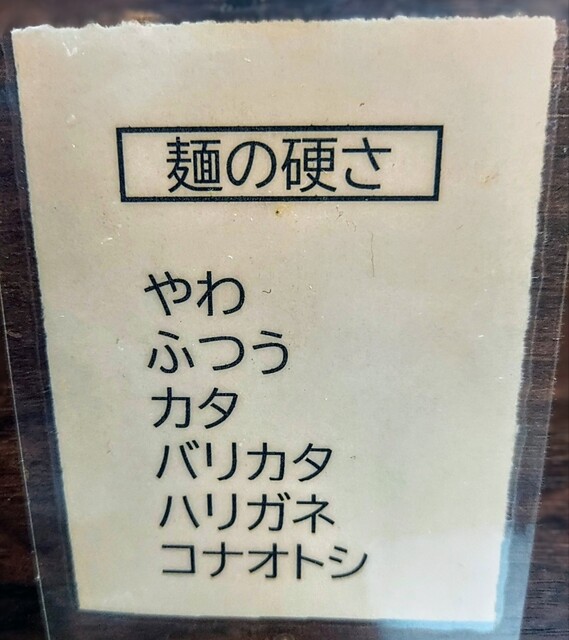 麺の硬さ
やわ
ふつう
カタ
バリカタ
ハリガネ
コナオトシ